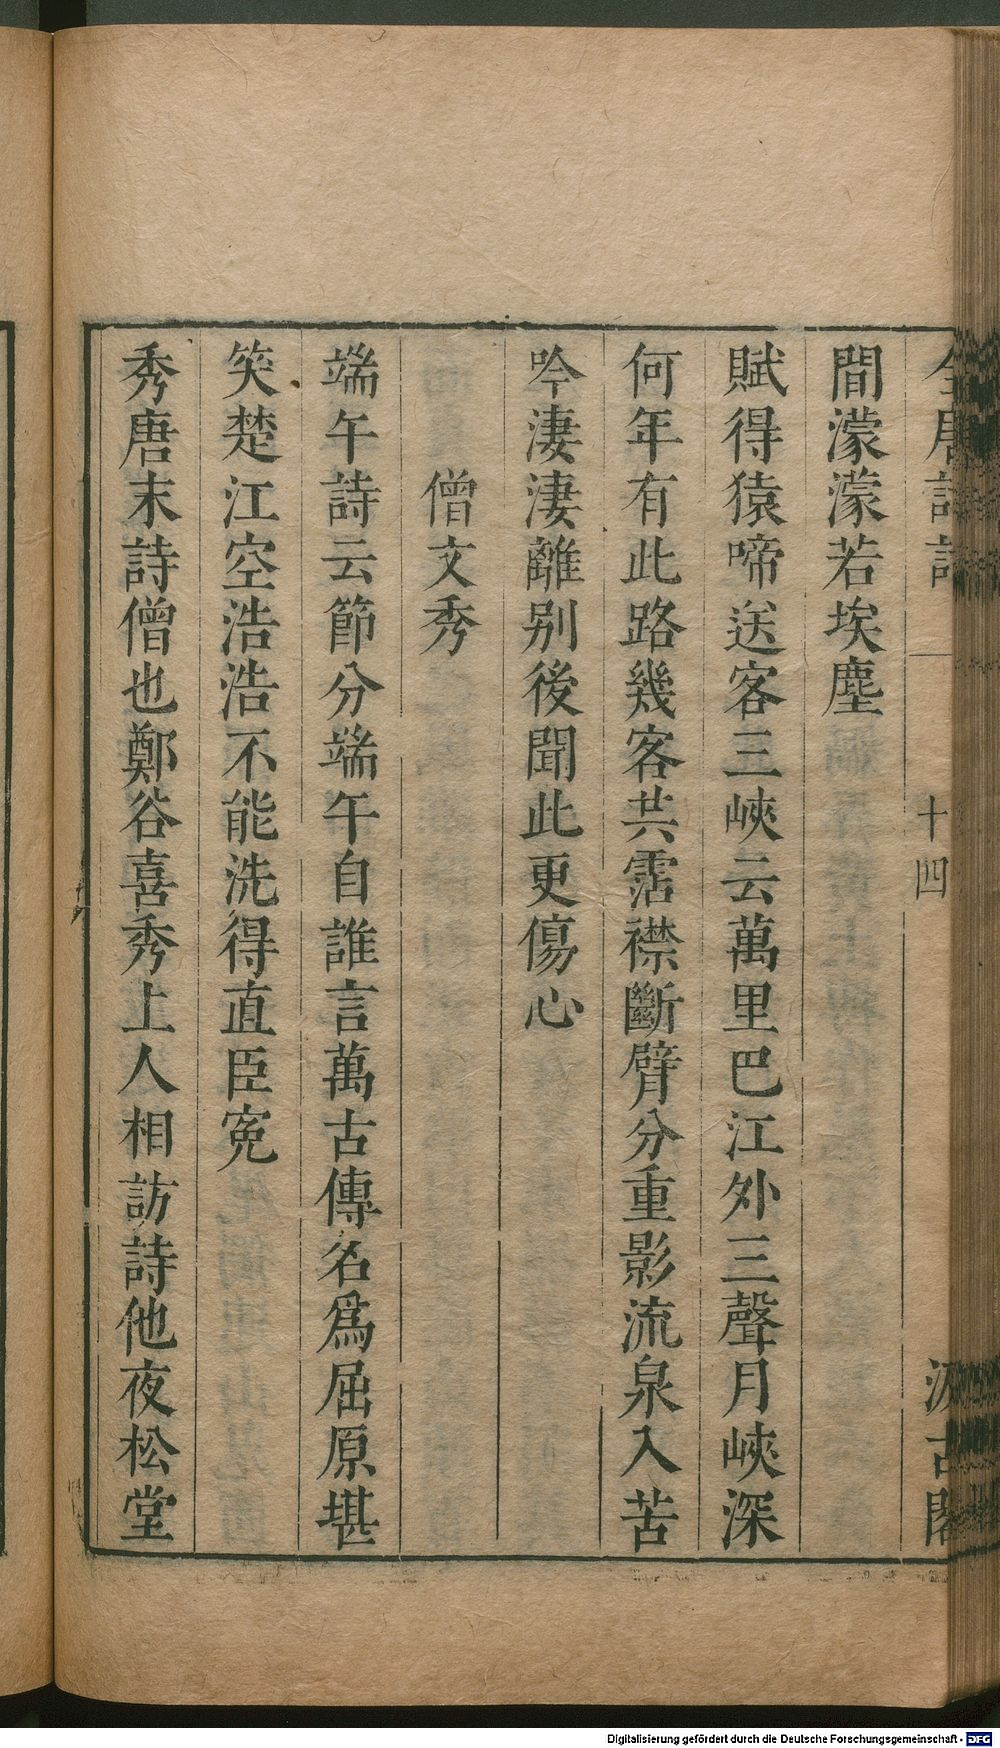 全唐詩話 十四 汲古閣
間濛濛若埃塵
賦得猿啼送客三峽云萬里巴江外三聲月峽深
何年有此路幾客共霑襟斷臂分重影流泉入苦
吟淒淒離别後聞此更傷心
僧文秀
端午詩云節分端午自誰言萬古傳名爲屈原堪
笑楚江空浩浩不能洗得直臣寃
秀唐末詩僧也鄭谷喜秀上人相訪詩他夜松堂
Digitalisierung gefördert durch die Deutsche Forschungsgemeinschaft - DFG